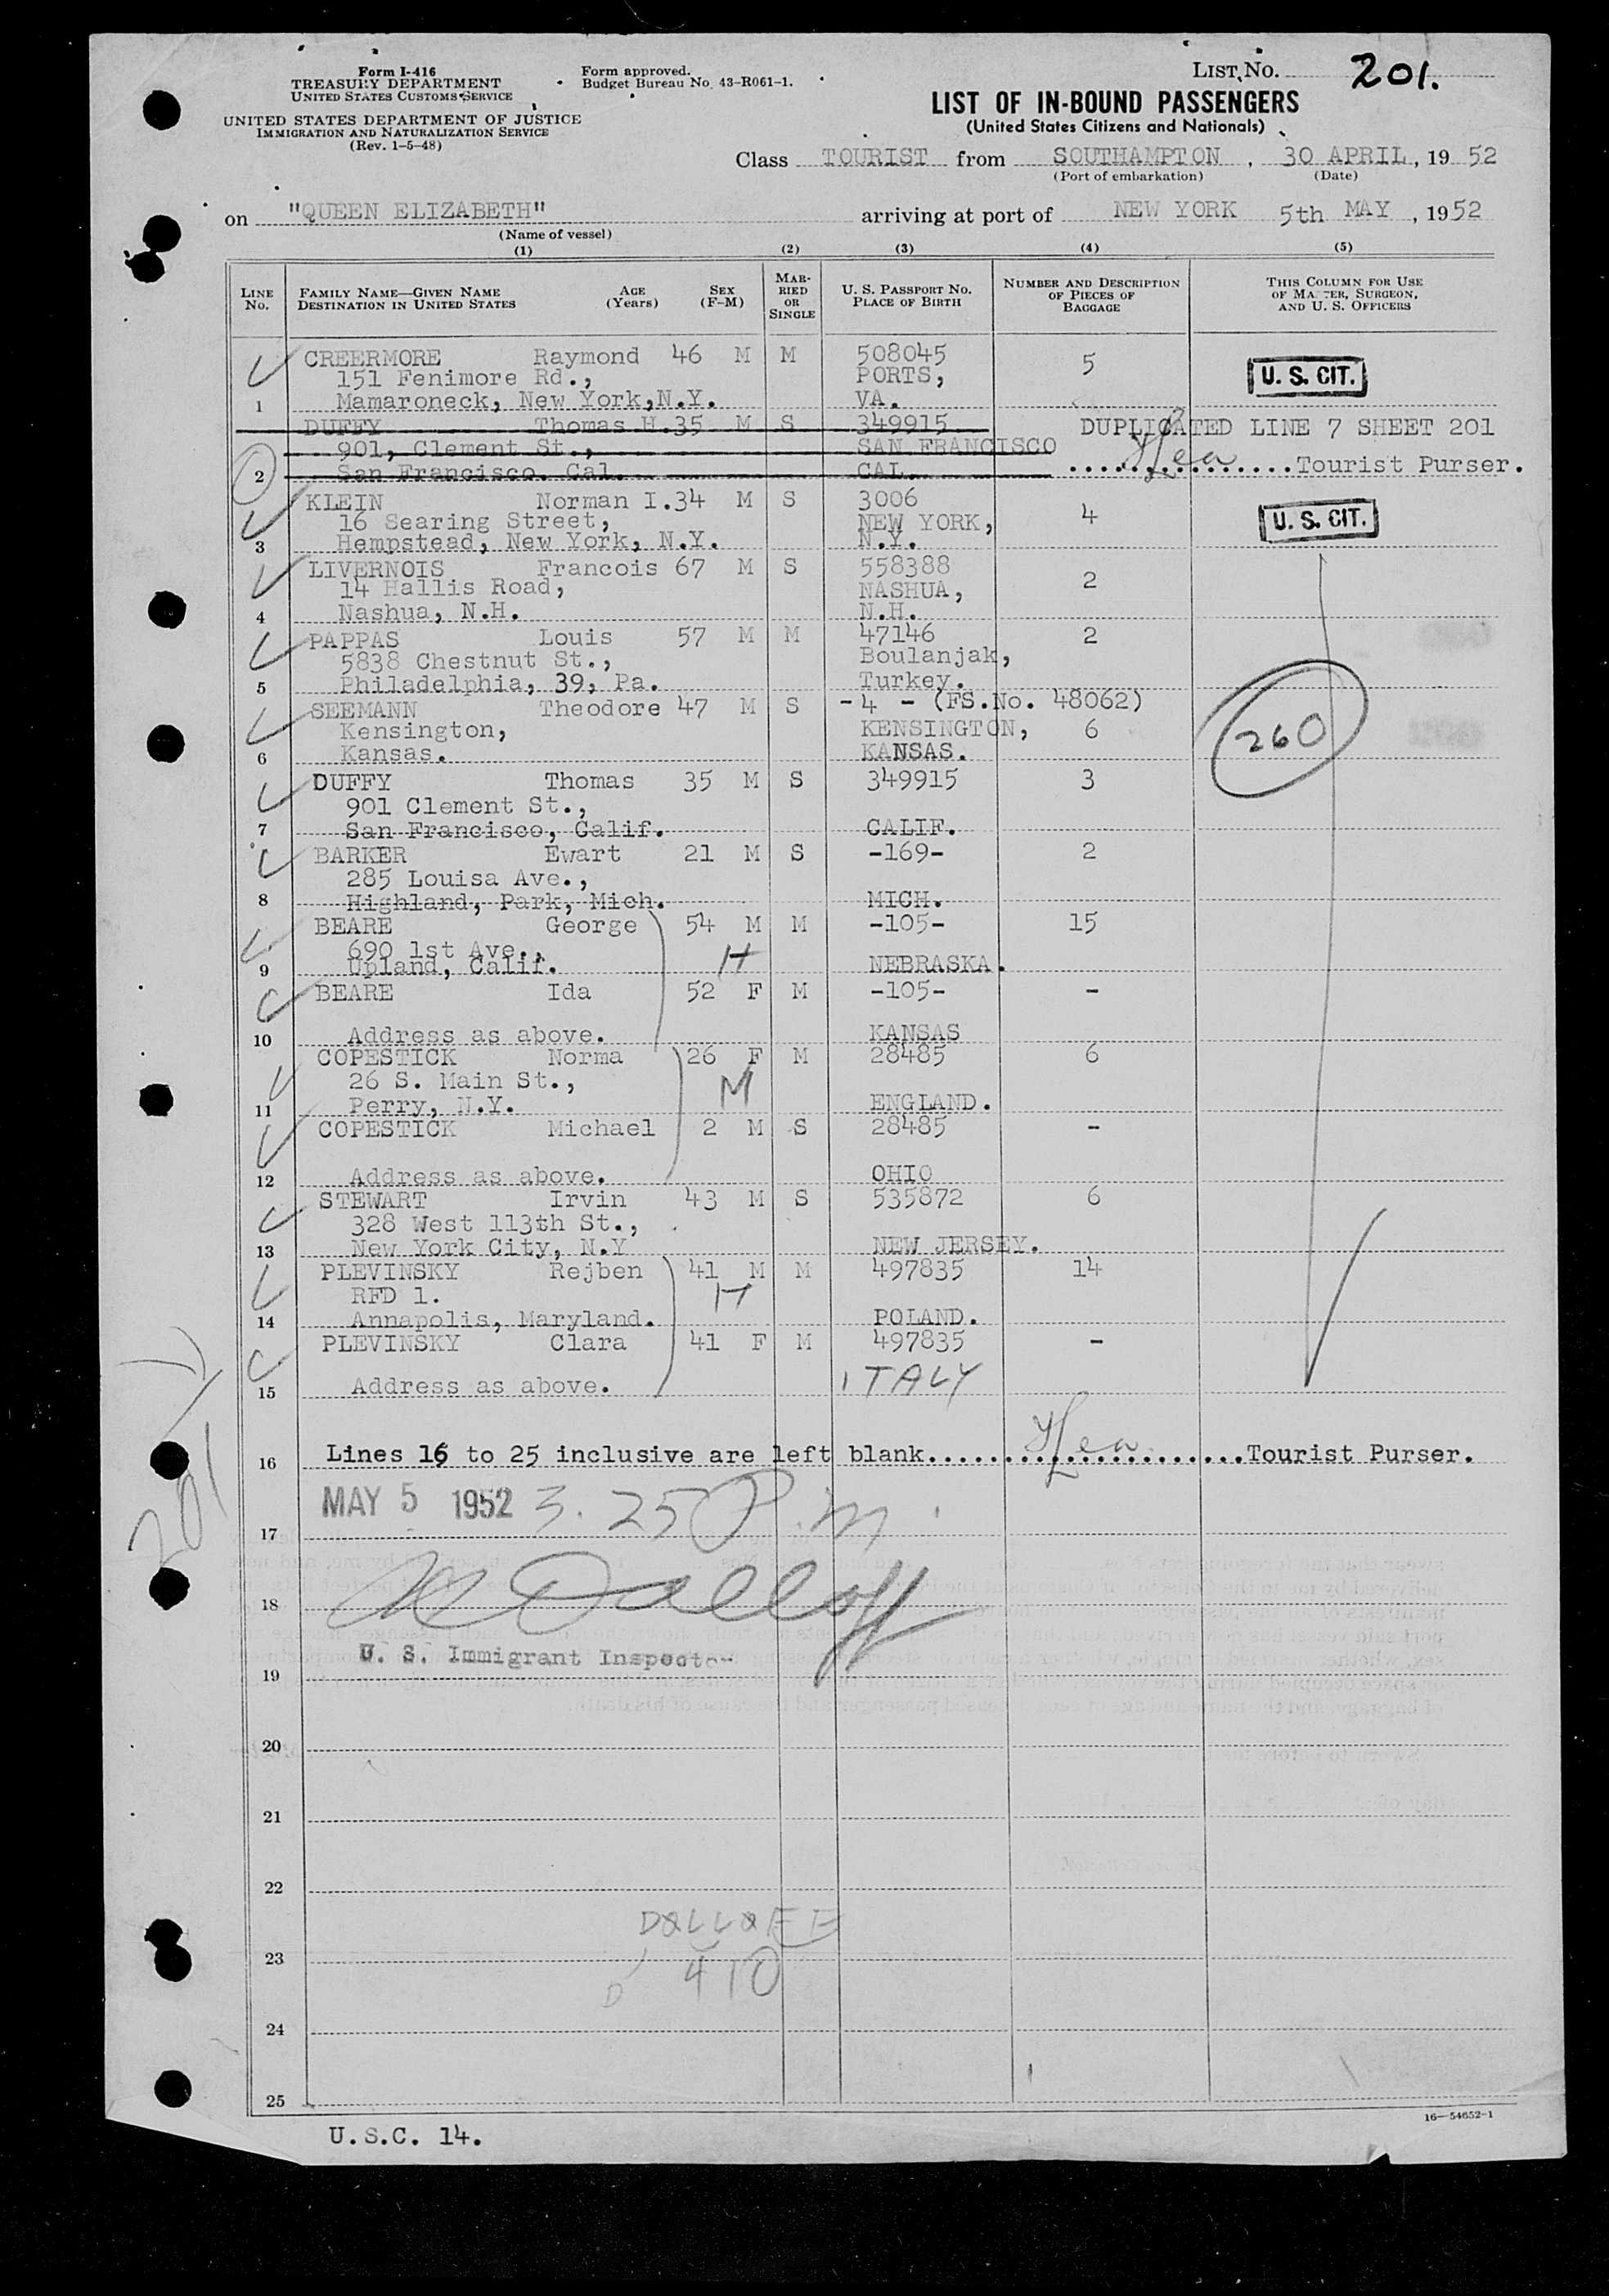 Form I-416
TREASURY DEPARTMENT
UNITED STATES CUSTOMS SERVICE
UNITED STATES DEPARTMENT OF JUSTICE
IMMIGRATION AND NATURALIZATION SERVICE
(Rev. 1-5-48)
Form approved.
Budget Bureau No. 43-R061-1.
LIST No. 201.
LIST OF IN-BOUND PASSENGERS
(United States Citizens and Nationals)
Class TOURIST from SOUTHAMPTON, 30 APRIL, 1952
(Port of embarkation) (Date)
on "QUEEN ELIZABETH" arriving at port of NEW YORK 5th MAY, 1952
(Name of vessel)
(1) (2) (3) (4) (5)
LINE No. FAMILY NAME—GIVEN NAME DESTINATION IN UNITED STATES AGE (Years) SEX (F-M) MARRIED OR SINGLE U. S. PASSPORT NO. PLACE OF BIRTH NUMBER AND DESCRIPTION OF PIECES OF BAGGAGE THIS COLUMN FOR USE OF MASTER, SURGEON, AND U. S. OFFICERS
CREERMORE Raymond 46 M M 508045 5 U. S. CIT.
151 Fenimore Rd., PORTS,
1 Mamaroneck, New York,N.Y. VA.
DUFFY Thomas H.35 M S 349915 DUPLICATED LINE 7 SHEET 201
901, Clement St., SAN FRANCISCO
2 San Francisco. Cal. CAL. ...............Tourist Purser.
KLEIN Norman I.34 M S 3006 4 U. S. CIT.
16 Searing Street, NEW YORK,
3 Hempstead, New York, N.Y. N.Y.
LIVERNOIS Francois 67 M S 558388 2
14 Hallis Road, NASHUA,
4 Nashua, N.H. N.H.
PAPPAS Louis 57 M M 47146 2
5838 Chestnut St., Boulanjak,
5 Philadelphia, 39, Pa. Turkey.
SEEMANN Theodore 47 M S -4 - (FS.No. 48062)
Kensington, KENSINGTON, 6 260
6 Kansas. KANSAS.
DUFFY Thomas 35 M S 349915 3
901 Clement St.,
7 San Francisco, Calif. CALIF.
BARKER Ewart 21 M S -169- 2
285 Louisa Ave.,
8 Highland, Park, Mich. MICH.
BEARE George 54 M M -105- 15
690 1st Ave., H
9 Upland, Calif. NEBRASKA.
BEARE Ida 52 F M -105- -
10 Address as above. KANSAS
COPESTICK Norma 26 F M 28485 6
26 S. Main St., M
11 Perry, N.Y. ENGLAND.
COPESTICK Michael 2 M S 28485 -
12 Address as above. OHIO
STEWART Irvin 43 M S 535872 6
328 West 113th St.,
13 New York City, N.Y NEW JERSEY.
PLEVINSKY Rejben 41 M M 497835 14
RFD 1. H
14 Annapolis, Maryland. POLAND.
PLEVINSKY Clara 41 F M 497835 -
15 Address as above. ITALY
16 Lines 16 to 25 inclusive are left blank.....................Tourist Purser.
MAY 5 1952 3.25 P.m.
17
201
18
U. S. Immigrant Inspector
19
20
21
22
DALLOFF
23
410
24
25
16—54652-1
U.S.C. 14.